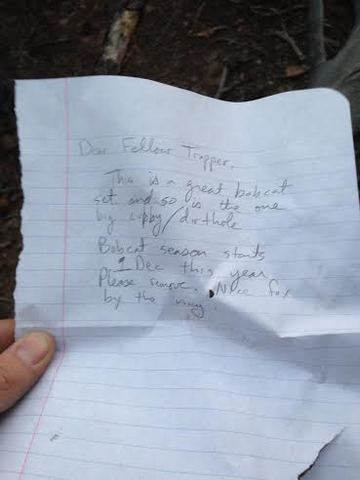 Dear Fellow Trapper,
This is a great bobcat
set and so is the one
big cubby/dirthole
Bobcat season starts
1 Dec this year
Please remove. Nice fox
by the way.